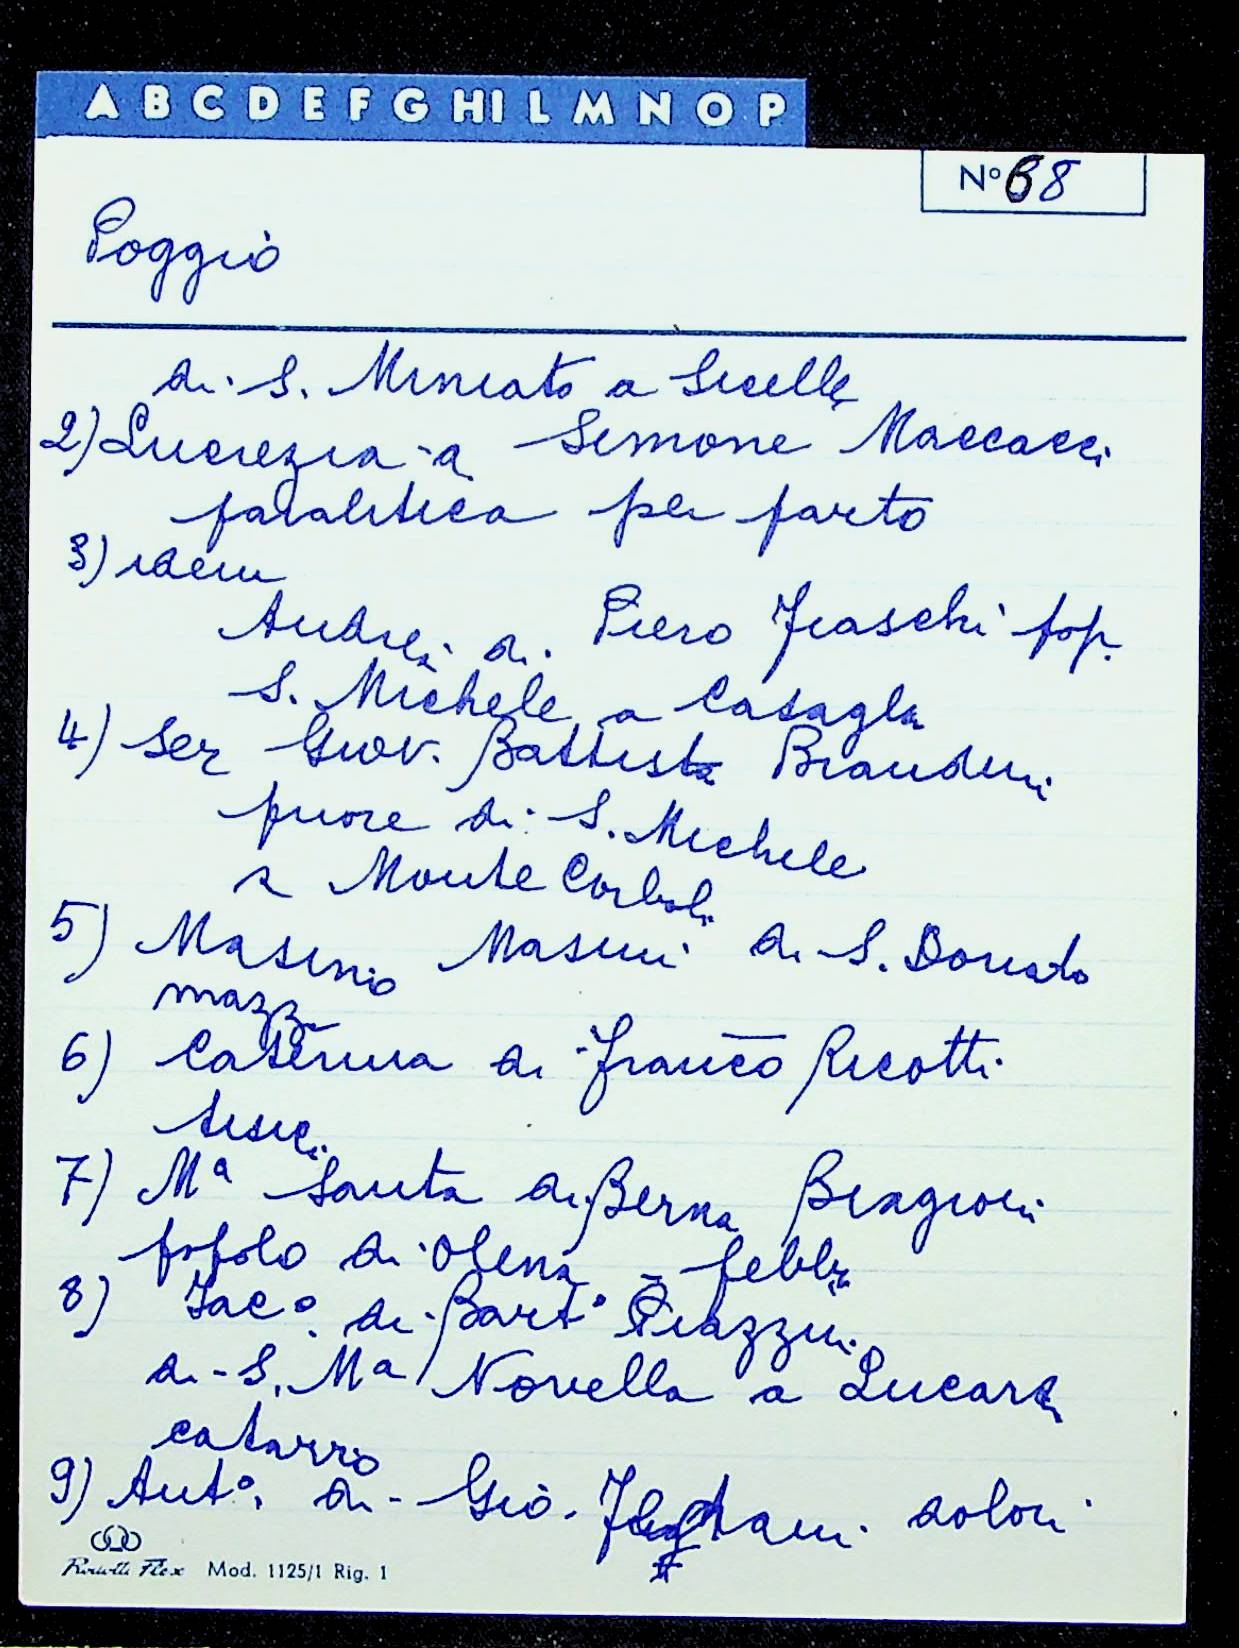 A B C D E F G HI L M N O P
N° 68
Poggio
di S. Miniato a Sicelle
2) Lucrezia a Simone Maccacci
paralitica per parto
3) idem
Andrea di Piero Fraschi pop.
S. Michele a Casaglia
4) Ser Giov. Battista Brandini
priore di S. Michele
a Monte Corboli
5) Masino Masini di S. Donato
mazza
6) Caterina di Franco Ricotti
tisica
7) Mª Santa di Berna Biagioni
popolo di Olena - febbre
8) Jac° di Bart° Piazzini
di S. Mª Novella a Lucarà
catarro
9) Ant° di Gio. dolori
Mod. 1125/1 Rig. 1